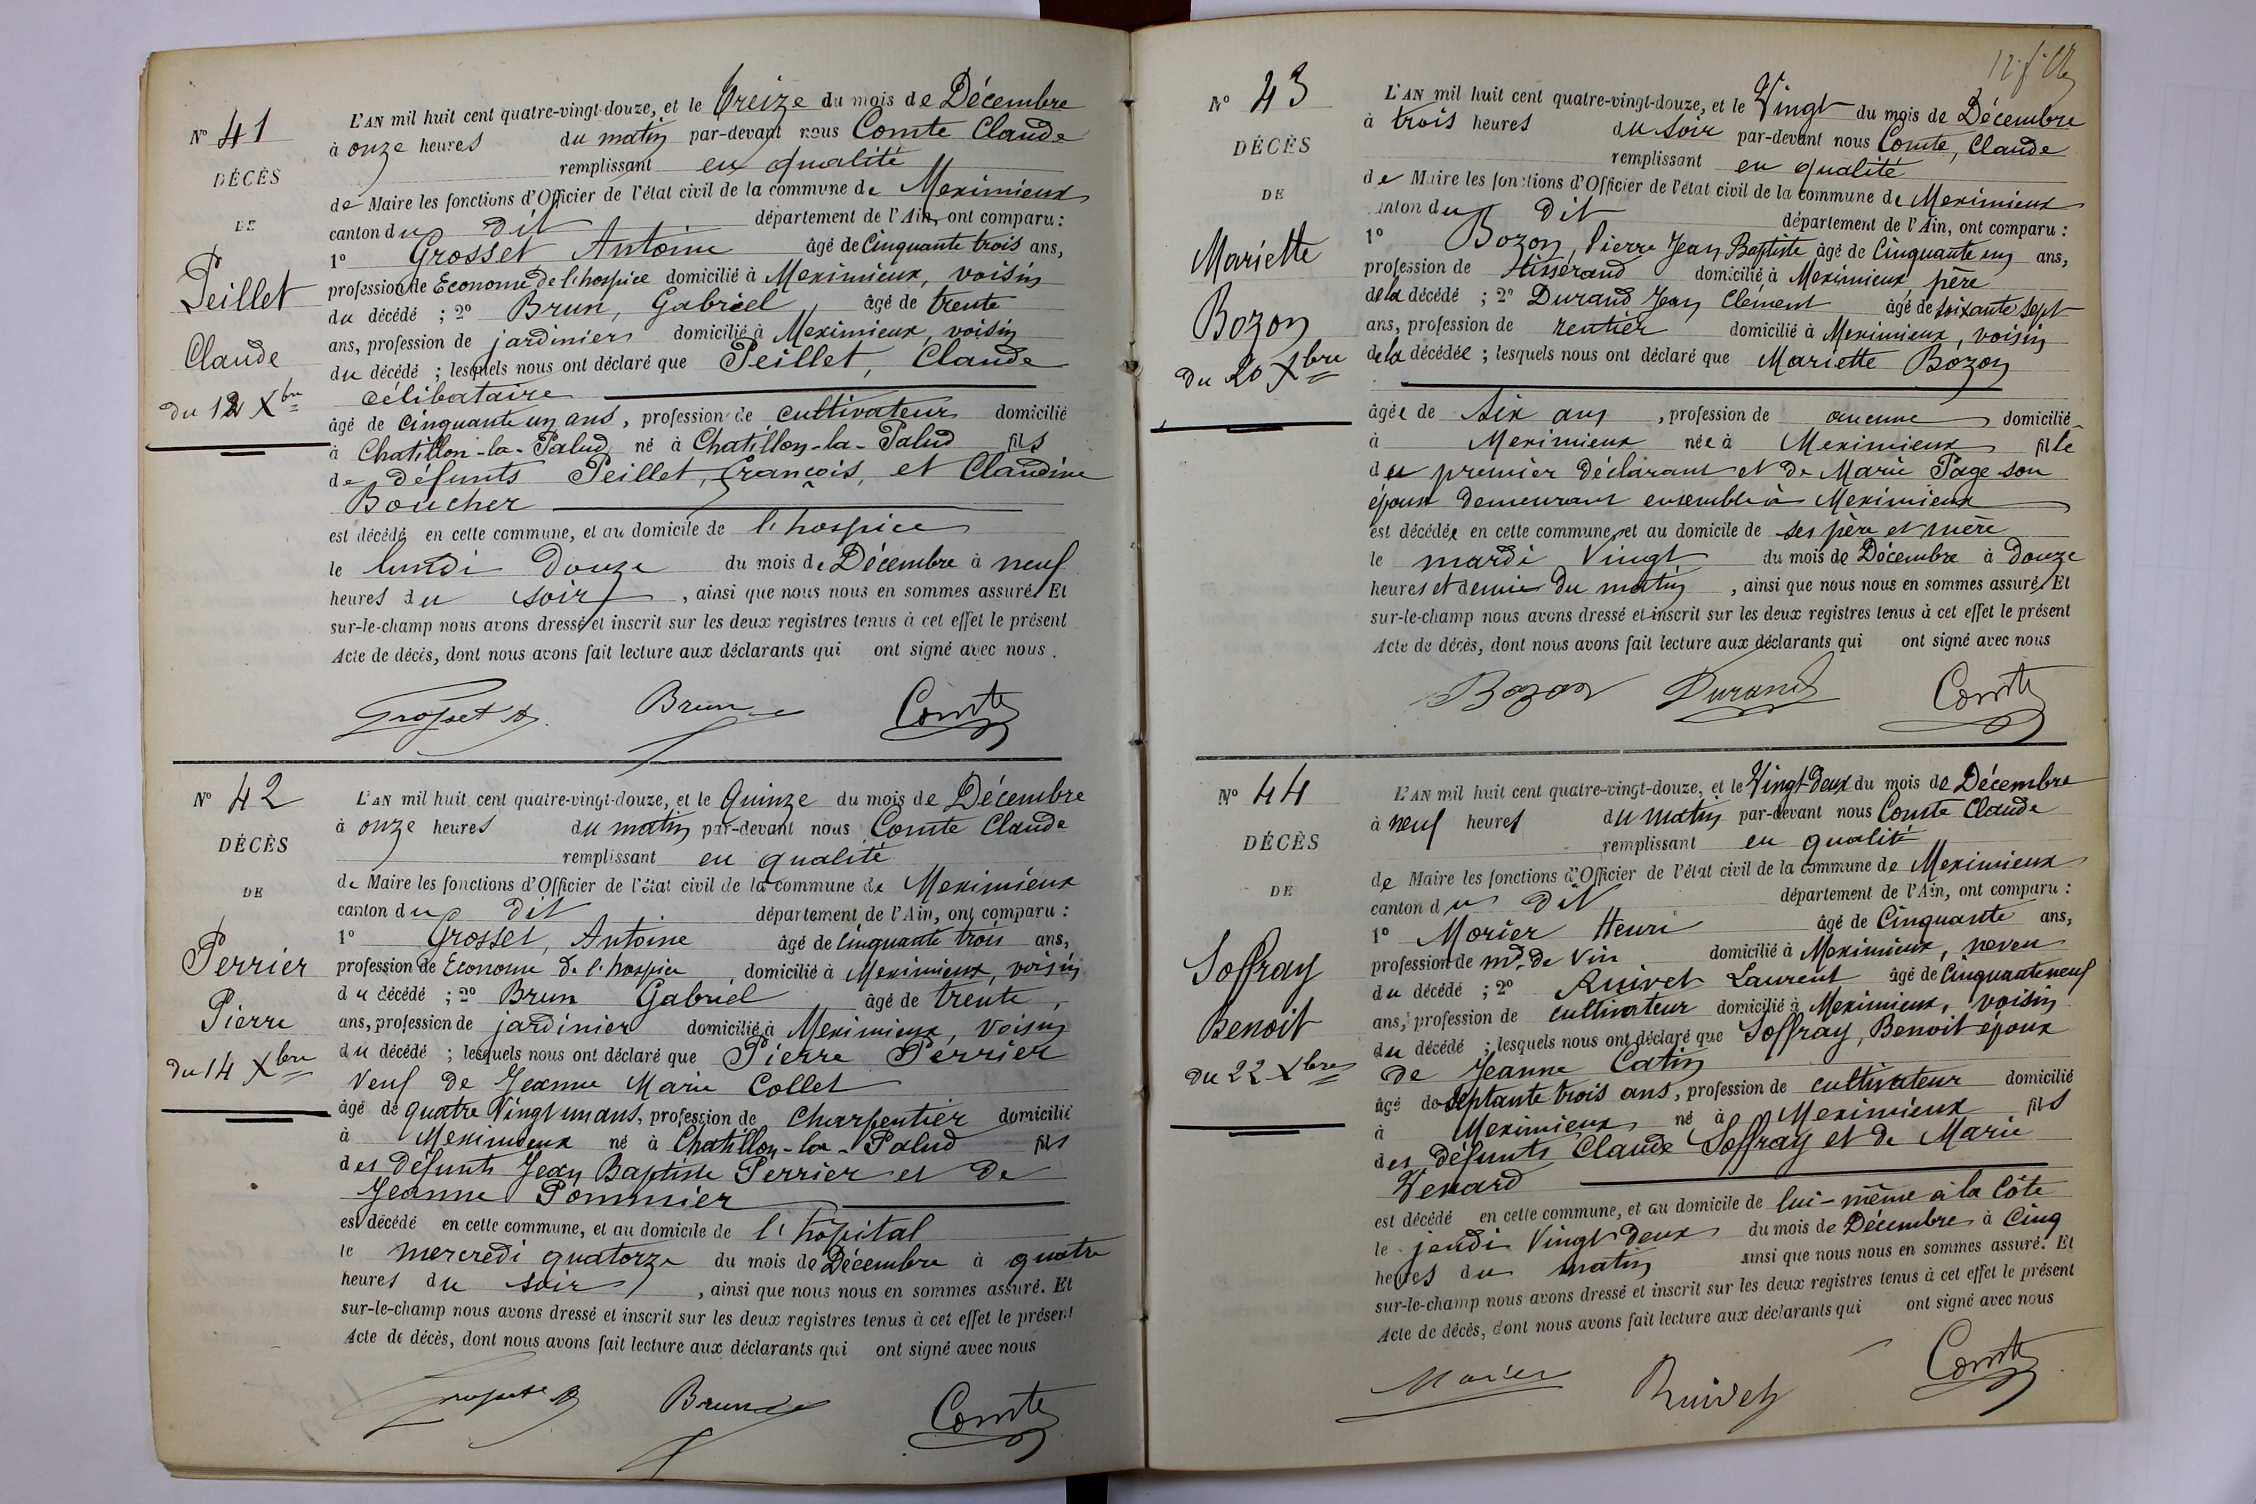 N° 41
DÉCÈS
DE
Peillet
Claude
du 12 Xbre
L'AN mil huit cent quatre-vingt-douze, et le treize du mois de Décembre
à onze heures du matin par-devant nous Comte Claude
remplissant en qualité
de Maire les fonctions d'Officier de l'état civil de la commune de Meximieux
canton du dit département de l'Ain, ont comparu :
1° Grosset Antoine âgé de Cinquante trois ans,
profession de Econome de l'hospice domicilié à Meximieux, voisin
du décédé ; 2° Brun, Gabriel, âgé de trente
ans, profession de jardinier domicilié à Meximieux, voisin
du décédé ; lesquels nous ont déclaré que Peillet, Claude
célibataire
âgé de cinquante un ans, profession de cultivateur domicilié
à Chatillon-la-Palud né à Chatillon-la-Palud fils
de défunts Peillet, François, et Claudine
Boucher
est décédé en cette commune, et au domicile de l'hospice
le lundi Douze du mois de Décembre à neuf
heures du soir, ainsi que nous nous en sommes assuré. Et
sur-le-champ nous avons dressé et inscrit sur les deux registres tenus à cet effet le présent
Acte de décès, dont nous avons fait lecture aux déclarants qui ont signé avec nous.
Grosset A. Brun Comte
N° 42
DÉCÈS
DE
Perrier
Pierre
du 14 Xbre
L'AN mil huit cent quatre-vingt-douze, et le Quinze du mois de Décembre
à onze heures du matin par-devant nous Comte Claude
remplissant en qualité
de Maire les fonctions d'Officier de l'état civil de la commune de Meximieux
canton du dit département de l'Ain, ont comparu :
1° Grosset, Antoine âgé de Cinquante trois ans,
profession de Econome de l'hospice, domicilié à Meximieux, voisin
du décédé ; 2° Brun Gabriel âgé de trente,
ans, profession de jardinier domicilié à Meximieux, voisin
du décédé ; lesquels nous ont déclaré que Pierre Perrier
Veuf de Jeanne Marie Collet
âgé de quatre Vingt un ans, profession de Charpentier domicilié
à Meximieux né à Chatillon-la-Palud fils
des défunts Jean Baptiste Perrier et de
Jeanne Pommier
est décédé en cette commune, et au domicile de l'hôpital
le mercredi quatorze du mois de Décembre à quatre
heures du soir, ainsi que nous nous en sommes assuré. Et
sur-le-champ nous avons dressé et inscrit sur les deux registres tenus à cet effet le présent
Acte de décès, dont nous avons fait lecture aux déclarants qui ont signé avec nous
Grosset A Brun Comte
N° 43
DÉCÈS
DE
Mariette
Bozon
du 20 Xbre
L'AN mil huit cent quatre-vingt-douze, et le Vingt du mois de Décembre
à trois heures du soir par-devant nous Comte, Claude
remplissant en qualité
de Maire les fonctions d'Officier de l'état civil de la commune de Meximieux
anton du dit département de l'Ain, ont comparu :
1° Bozon, Pierre Jean Baptiste âgé de Cinquante un ans,
profession de tisserand domicilié à Meximieux, père
de la décédé ; 2° Durand Jean Clément âgé de soixante sept
ans, profession de rentier domicilié à Meximieux, voisin
de la décédée ; lesquels nous ont déclaré que Mariette Bozon
âgée de Six ans, profession de aucune domicilié
à Meximieux née à Meximieux fille
du premier déclarant et de Marie Page son
épouse demeurant ensemble à Meximieux
est décédée en cette commune, et au domicile de ses père et mère
le mardi Vingt du mois de Décembre à douze
heures et demie du matin, ainsi que nous nous en sommes assuré. Et
sur-le-champ nous avons dressé et inscrit sur les deux registres tenus à cet effet le présent
Acte de décès, dont nous avons fait lecture aux déclarants qui ont signé avec nous
Bozon Durand Comte
N° 44
DÉCÈS
DE
Soffray
Benoit
du 22 Xbre
L'AN mil huit cent quatre-vingt-douze, et le Vingt deux du mois de Décembre
à neuf heures du matin par-devant nous Comte Claude
remplissant en qualité
de Maire les fonctions d'Officier de l'état civil de la commune de Meximieux
canton du dit département de l'Ain, ont comparu :
1° Morier Henri âgé de Cinquante ans,
profession de md. de vin domicilié à Meximieux, neveu
du décédé ; 2° Ruivet Laurent âgé de Cinquante neuf
ans, profession de cultivateur domicilié à Meximieux, voisin
du décédé ; lesquels nous ont déclaré que Soffray, Benoit époux
de Jeanne Catin
âgé de septante trois ans, profession de cultivateur domicilié
à Meximieux né à Meximieux fils
des défunts Claude Soffray et de Marie
Venard
est décédé en cette commune, et au domicile de lui-même à la Côte
le jeudi Vingt deux du mois de Décembre à Cinq
heures du matin ainsi que nous nous en sommes assuré. Et
sur-le-champ nous avons dressé et inscrit sur les deux registres tenus à cet effet le présent
Acte de décès, dont nous avons fait lecture aux déclarants qui ont signé avec nous
Morier Ruivet Comte